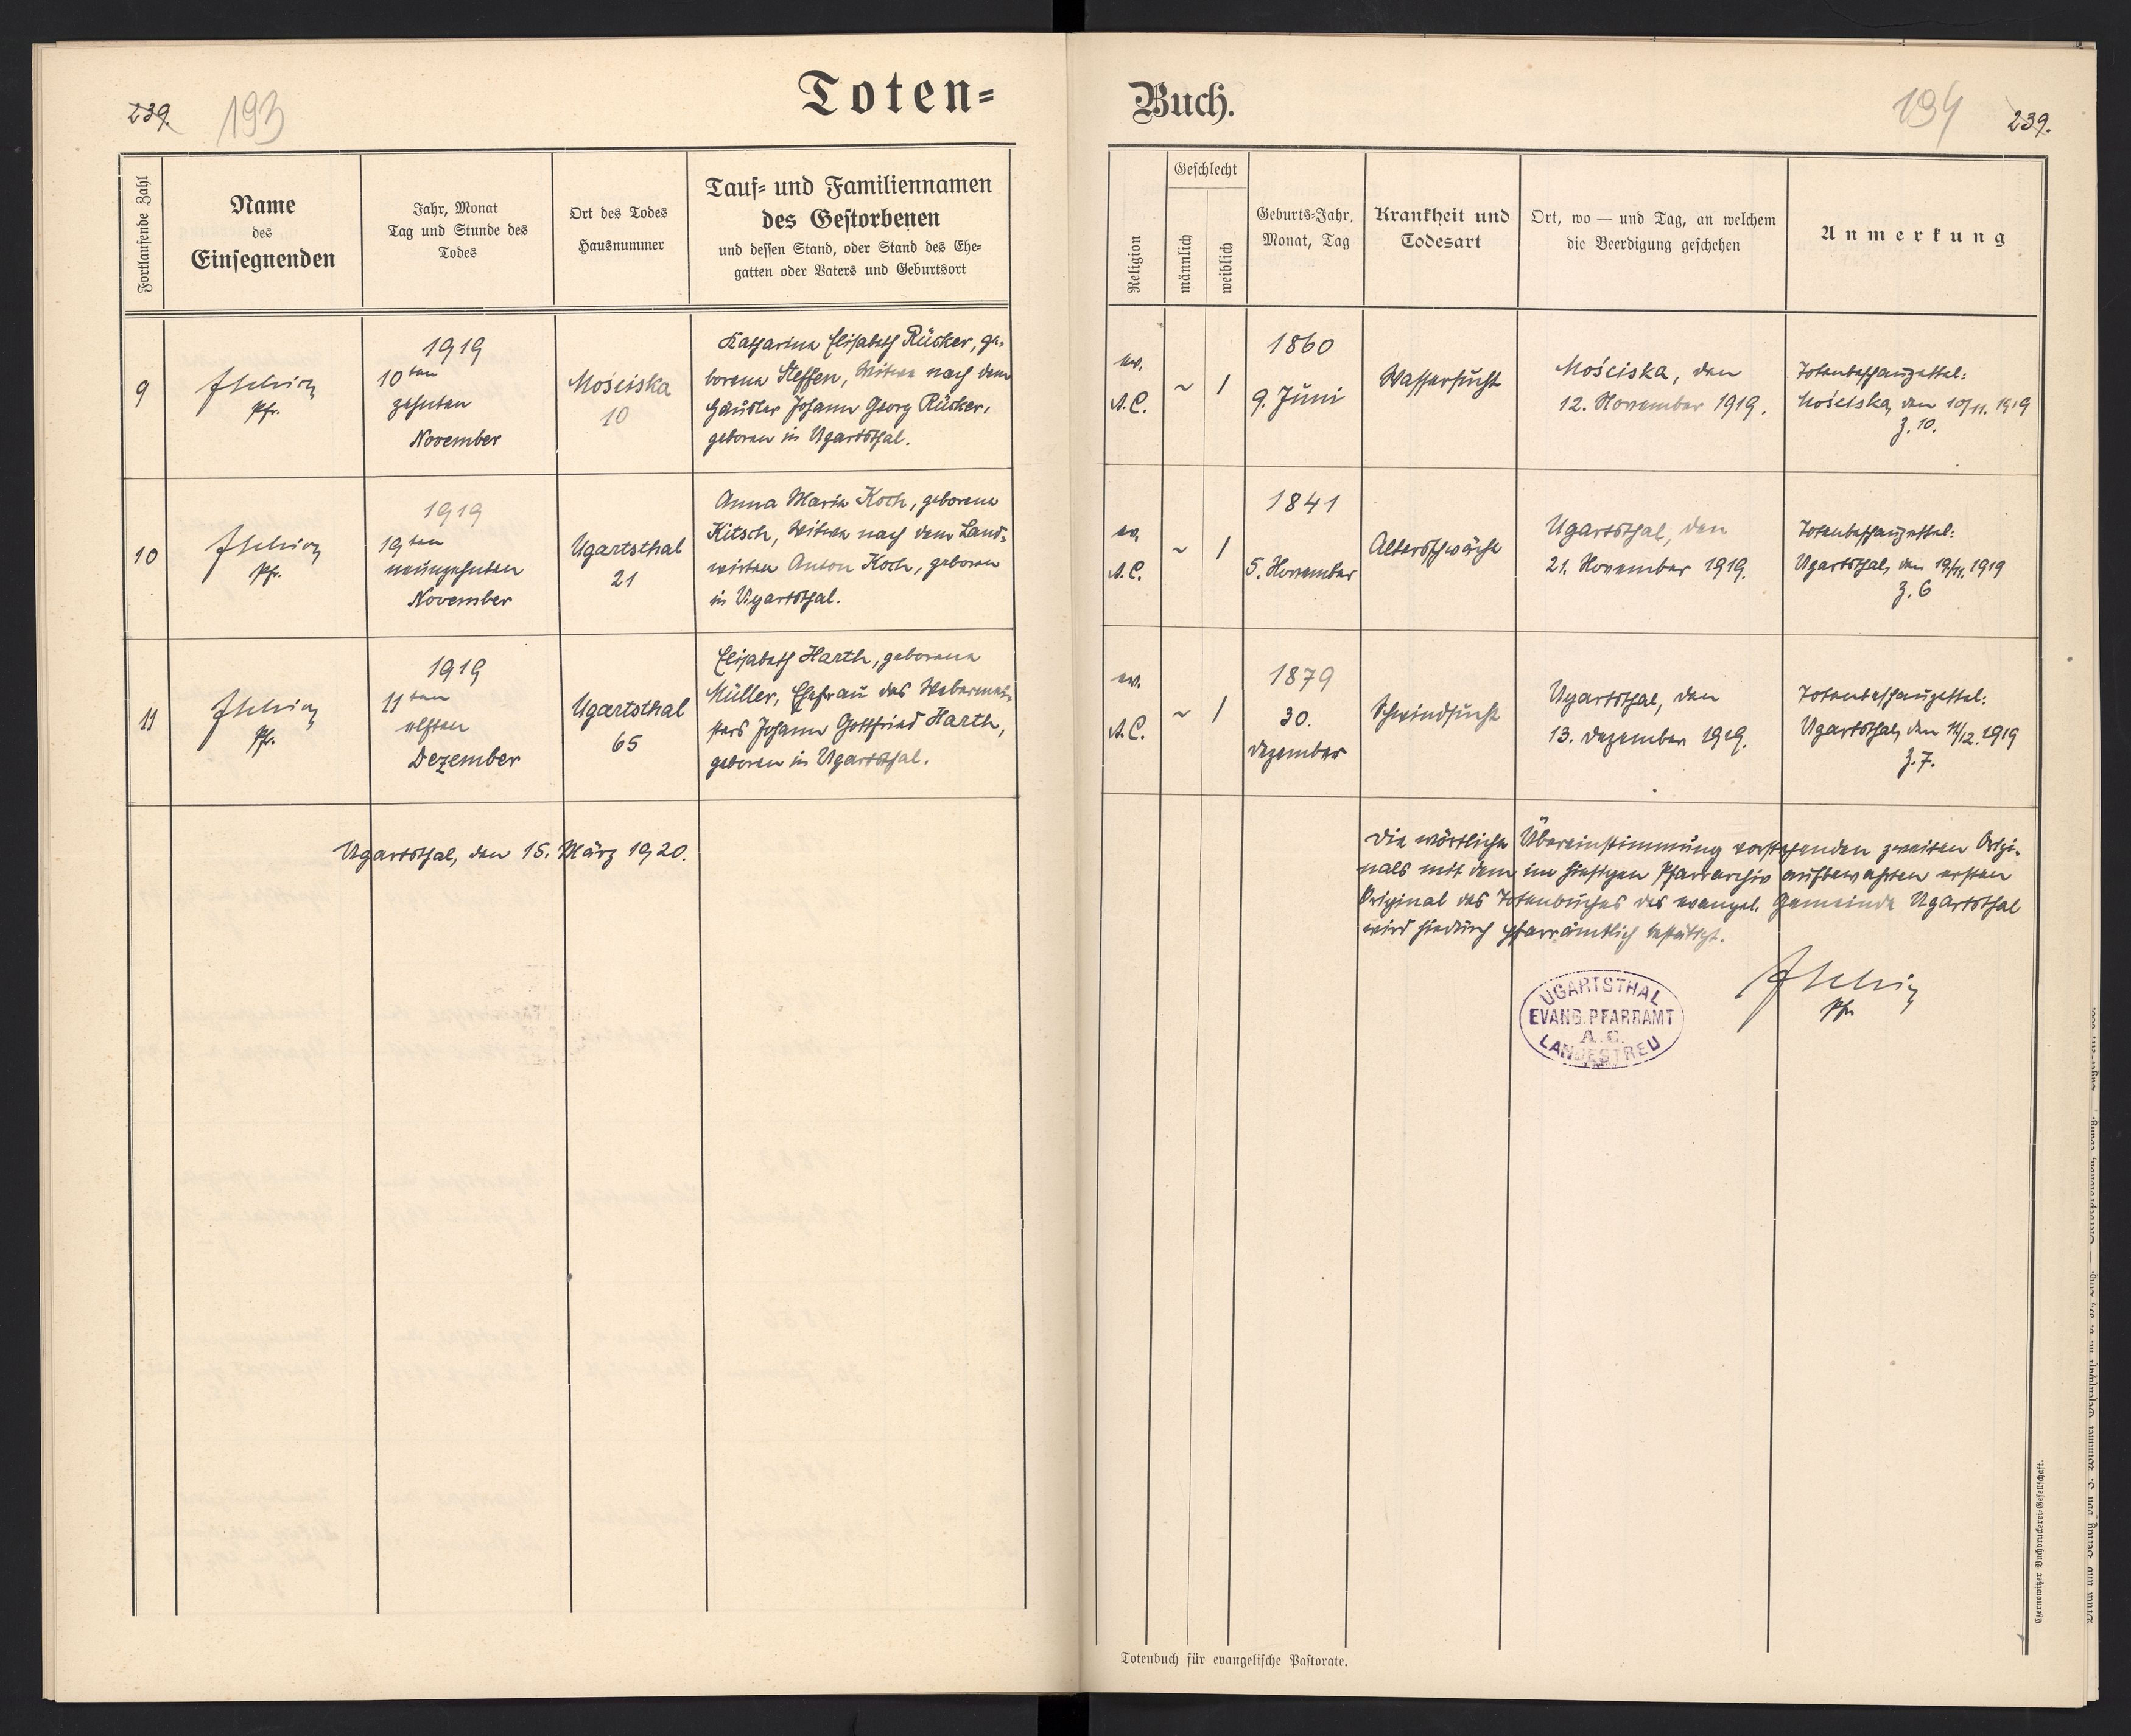 239. 193
Toten=
Fortlaufende Zahl
Name
des
Einsegnenden
Jahr, Monat
Tag und Stunde des
Todes
Ort des Todes
Hausnummer
Tauf= und Familiennamen
des Gestorbenen
und dessen Stand, oder Stand des Ehe=
gatten oder Vaters und Geburtsort
9
Pfr.
1919
10ten
zehnten
November
Mościska
10
Katharina Elisabeth Rücker, ge-
borene Steffen, Witwe nach dem
Häusler Johann Georg Rücker,
geboren in Ugartsthal.
10
Pfr.
1919
19ten
neunzehnten
November
Ugartsthal
21
Anna Maria Koch, geborene
Kitsch, Witwe nach dem Land-
wirten Anton Koch, geboren
in Ugartsthal.
11
Pfr.
1919
11ten
elften
Dezember
Ugartsthal
65
Elisabeth Harth, geborene
Müller, Ehefrau des Webermei-
sters Johann Gottfried Harth,
geboren in Ugartsthal.
Ugartsthal, den 15. März 1920.
Buch.
194 239.
Religion
Geschlecht
männlich
weiblich
Geburts=Jahr,
Monat, Tag
Krankheit und
Todesart
Ort, wo — und Tag, an welchem
die Beerdigung geschehen
Anmerkung
ev.
A.C.
~ 1
1860
9. Juni
Wassersucht
Mościska, den
12. November 1919.
Totenbeschauzettel:
Mościska, den 10/11. 1919
Z. 10.
ev.
A.C.
~ 1
1841
5. November
Altersschwäche
Ugartsthal, den
21. November 1919.
Totenbeschauzettel:
Ugartsthal, den 19/11. 1919
Z. 6
ev.
A.C.
~ 1
1879
30.
Dezember
Schwindsucht
Ugartsthal, den
13. Dezember 1919.
Totenbeschauzettel:
Ugartsthal, den 11/12. 1919
Z. 7.
Die wörtliche Übereinstimmung vorstehenden zweiten Origi-
nals mit dem im hiesigen Pfarrarchiv aufbewahrten ersten
Original des Totenbuches der evangel. Gemeinde Ugartsthal
wird hiedurch pfarrämtlich bestätigt.
Pfr.
UGARTSTHAL
EVANG. PFARRAMT
A. C.
LANDESTREU
Totenbuch für evangelische Pastorate.
Czernowitzer Buchdruckerei=Gesellschaft.